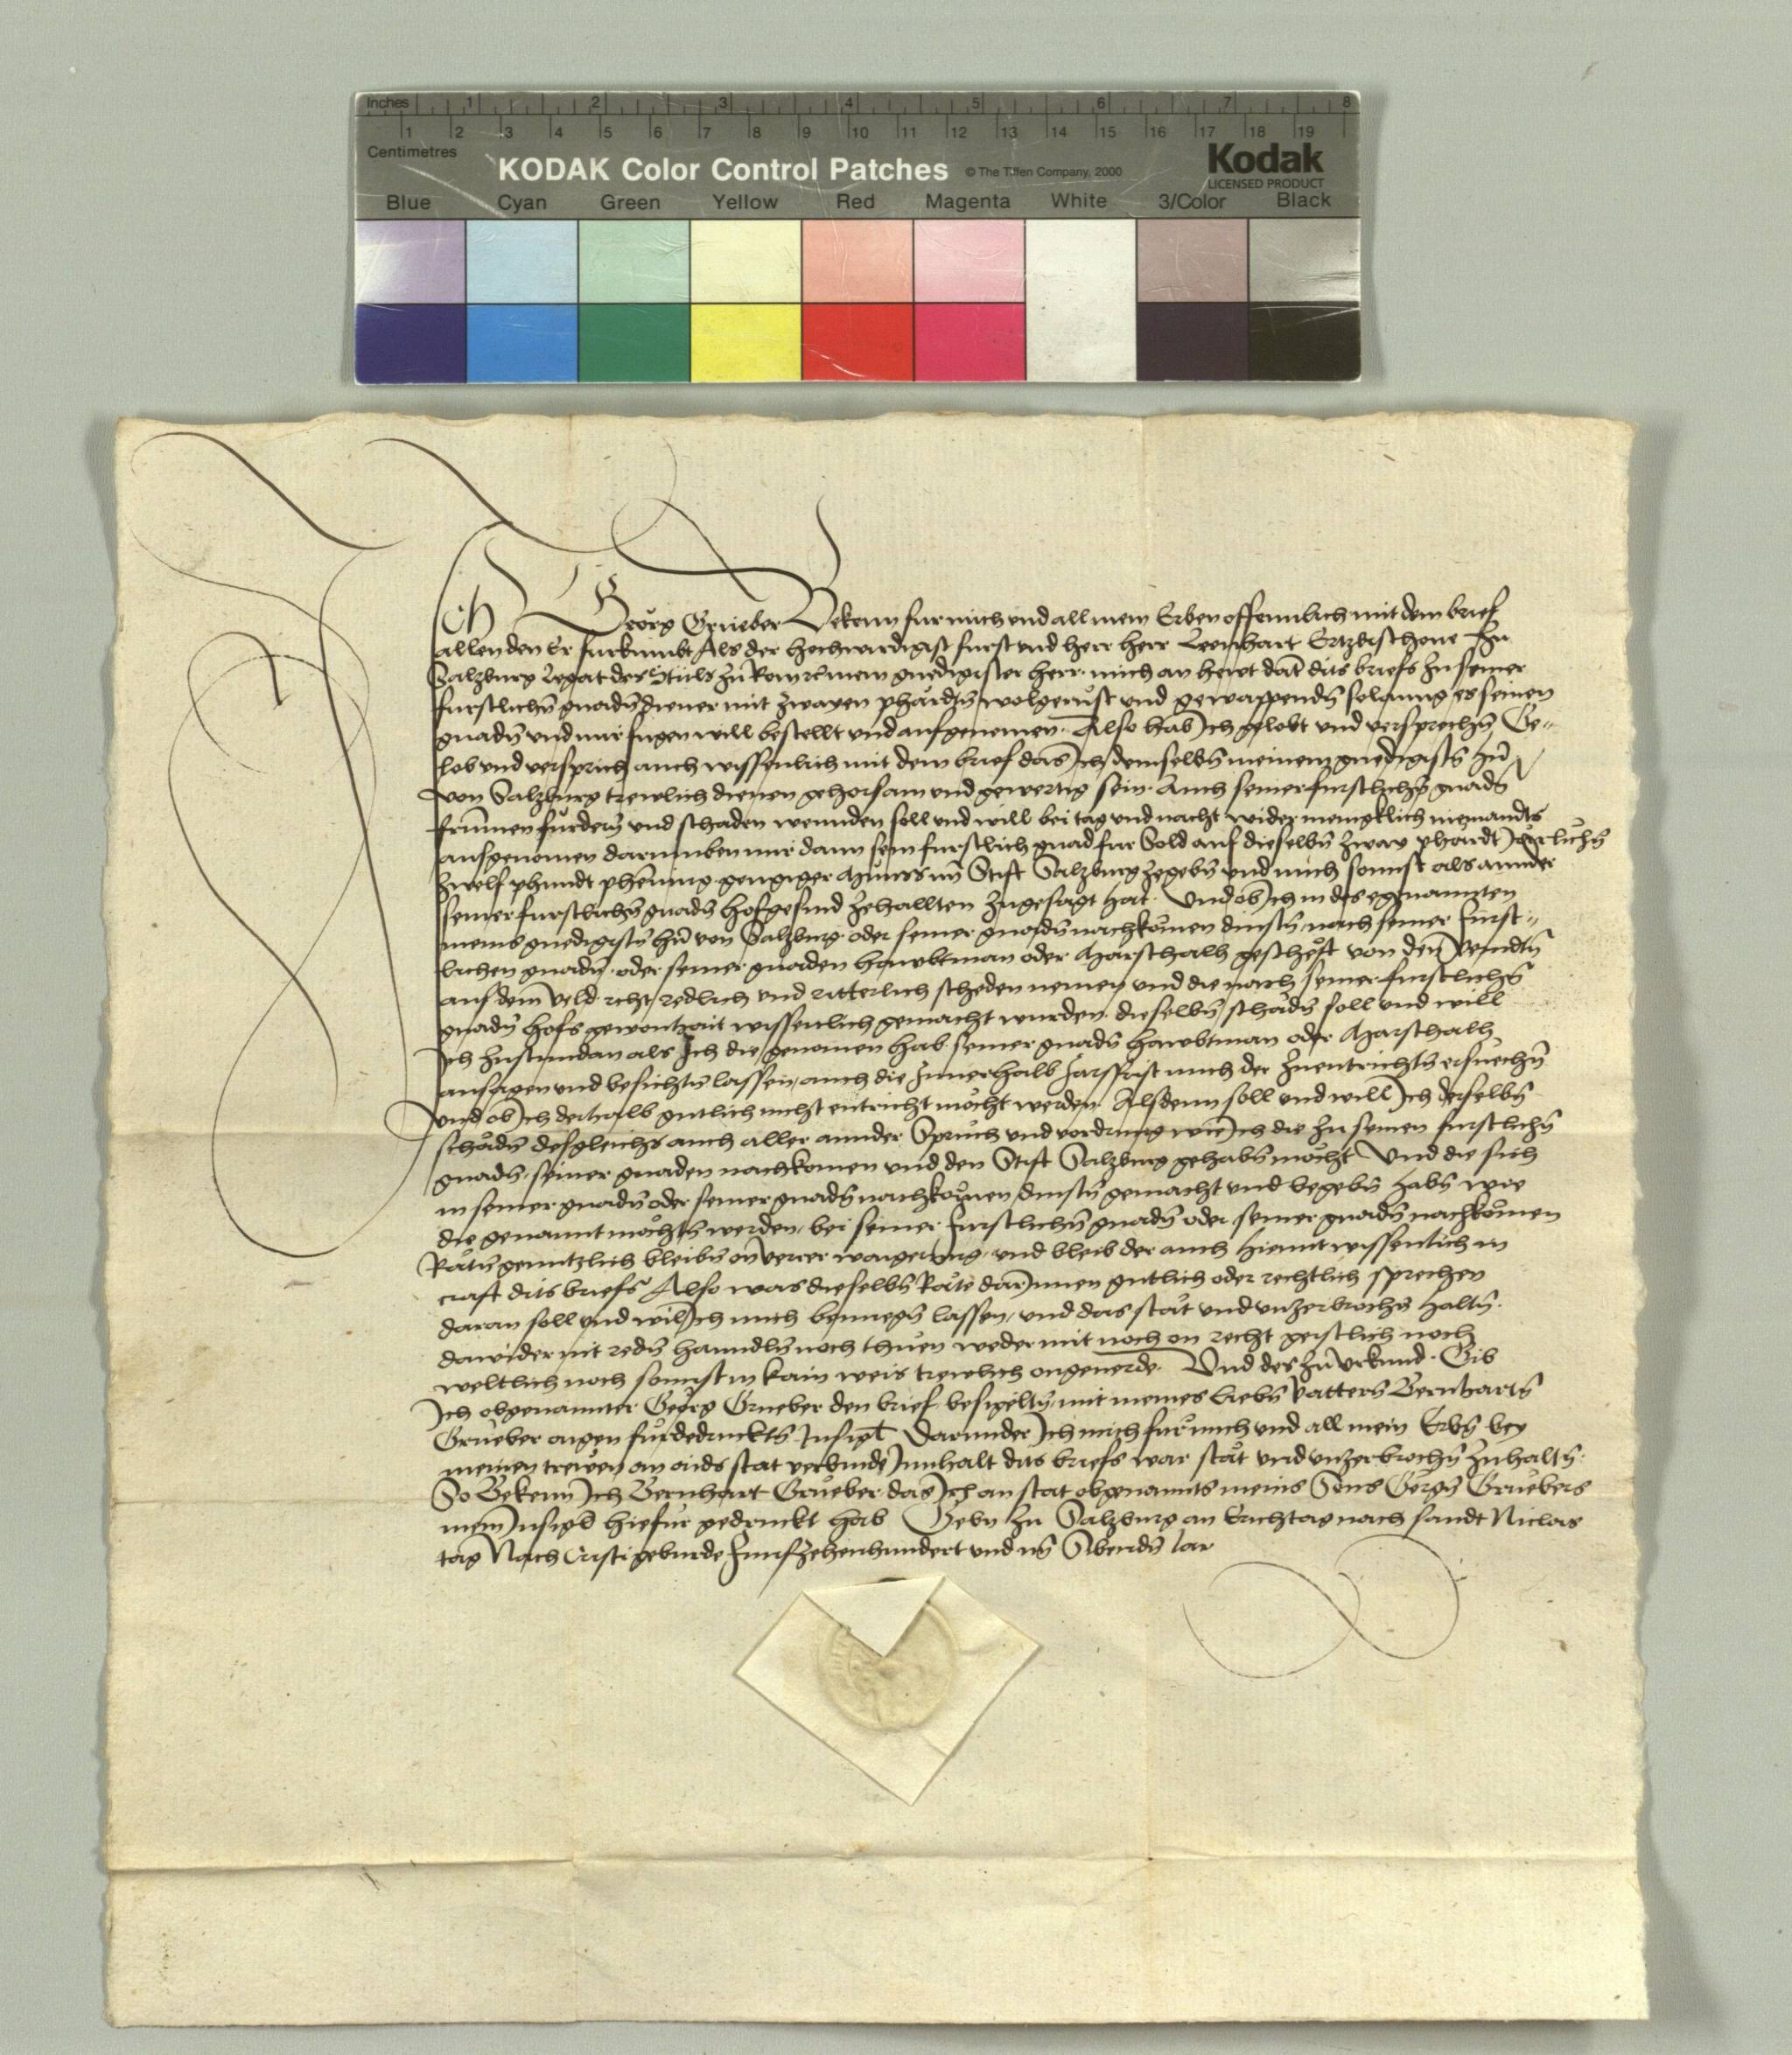 Inches 1 2 3 4 5 6 7 8
1 2 3 4 5 6 7 8 9 10 11 12 13 14 15 16 17 18 19
Centimetres
KODAK Color Control Patches © The Tiffen Company, 2000 Kodak
LICENSED PRODUCT
Blue Cyan Green Yellow Red Magenta White 3/Color Black
Ich Georg Grueber Bekenn fur mich und all mein Erben offennlich mit dem brief
allen den Er furkumbt Als der hochwirdigist furst und herr herr Leonhart Ertzbischoue zu
Salzburg Legat des Stuls zu Rom mein gnedigister herr mich an hewt dat dits briefs zu seiner
furstlichn gnadn diener mit zwayen phärdtn wolgerüst und gewappendn solanng es seinen
gnadn und mir fugen will bestellt und aufgenomen. Also hab Ich gelobt und versprochn Ge-
lob und versprich auch wissenlich mit dem brief das Ich demselbn meinem gnedigistn hn
von Salzburg trewlich dienen gehorsam und gewertig sein. Auch seiner furstlichn gnadn
frumen fürdern und schaden wennden soll und will bei tag und nacht wider menigklich niemandts
ausgenomen darumben mir dann sein furstlich gnad fur Sold auf dieselbn zway phärdt Järlichn
zwelf phundt phening genngiger Münss im Stift Salzburg zegebn und mich sonnst als annder
seiner furstlichn gnadn hofgesind zehallten zugesagt hat. Und ob Ich in des egenannten
meins gnedigistn hn von Salzburg oder seiner gnadn nachkomen dinstn nach seiner furst-
lichen gnadn oder seiner gnaden hawbtman oder Marschalh geschefft von den Veindtn
auf dem Veld recht redlich und ritterlich scheden nemen und die nach seiner furstlichn
gnadn hofs gewonhait wissenlich gemacht wurden dieselbn schädn soll und will
Ich zustundan als Ich die genomen hab seiner gnadn hawbtman oder Marschalh
ansagen und besichtn lassen, auch die Innerhalb Jarsfrist mich der zuentrichtn ersuechn
und ob Ich derhalb gutlich nicht entricht möcht werden. Alsdenn soll und will Ich derselbn
schädn desgleichs auch aller annder Spruch und vordrung wie Ich die zu seinen furstlichn
gnadn, seiner gnaden nachkomen und den Stift Salzburg gehabn möcht Und die sich
in seiner gnadn oder seiner gnadn nachkomen dinstn gemacht und begebn habn wie
die genannt möchtn werden, bei seiner furstlichn gnadn oder seiner gnadn nachkomen
Rätn genntzlich bleibn on verrer waigerung, und bleib der auch hiemit wissenlich in
craft dits briefs Also was dieselbn Räte darInnen gutlich oder rechtlich sprechen
daran soll und wil Ich mich benuegn lassen, und das stät und unzerbrochn haltn.
dawider nit redn hanndln noch thuen weder mit noch on recht geistlich noch
weltlich noch sonnst in kain weis trewlich ongeuerde. Und des zu Urkund. Gib
Ich obgenannter Georg Grueber den brief besigeltn mit meines Liebn Vatters Bernharts
Grueber aigen fürdedrucktn Insigl Darunder Ich mich fur mich und all mein Erbn bey
meinen trewen an aids stat verbinde Innhalt dits briefs war stät und unzerbrochn zuhaltn.
So Bekenn Ich Bernhart Grueber das Ich an stat obgenannts meins Sons Gergn Gruebers
mein Insigl hiefur gedruckt hab Gebn zu Salzburg an Erichtag nach sandt Niclas
tag Nach Cristi geburde Funfzehenhundert und im Sibendn Jar